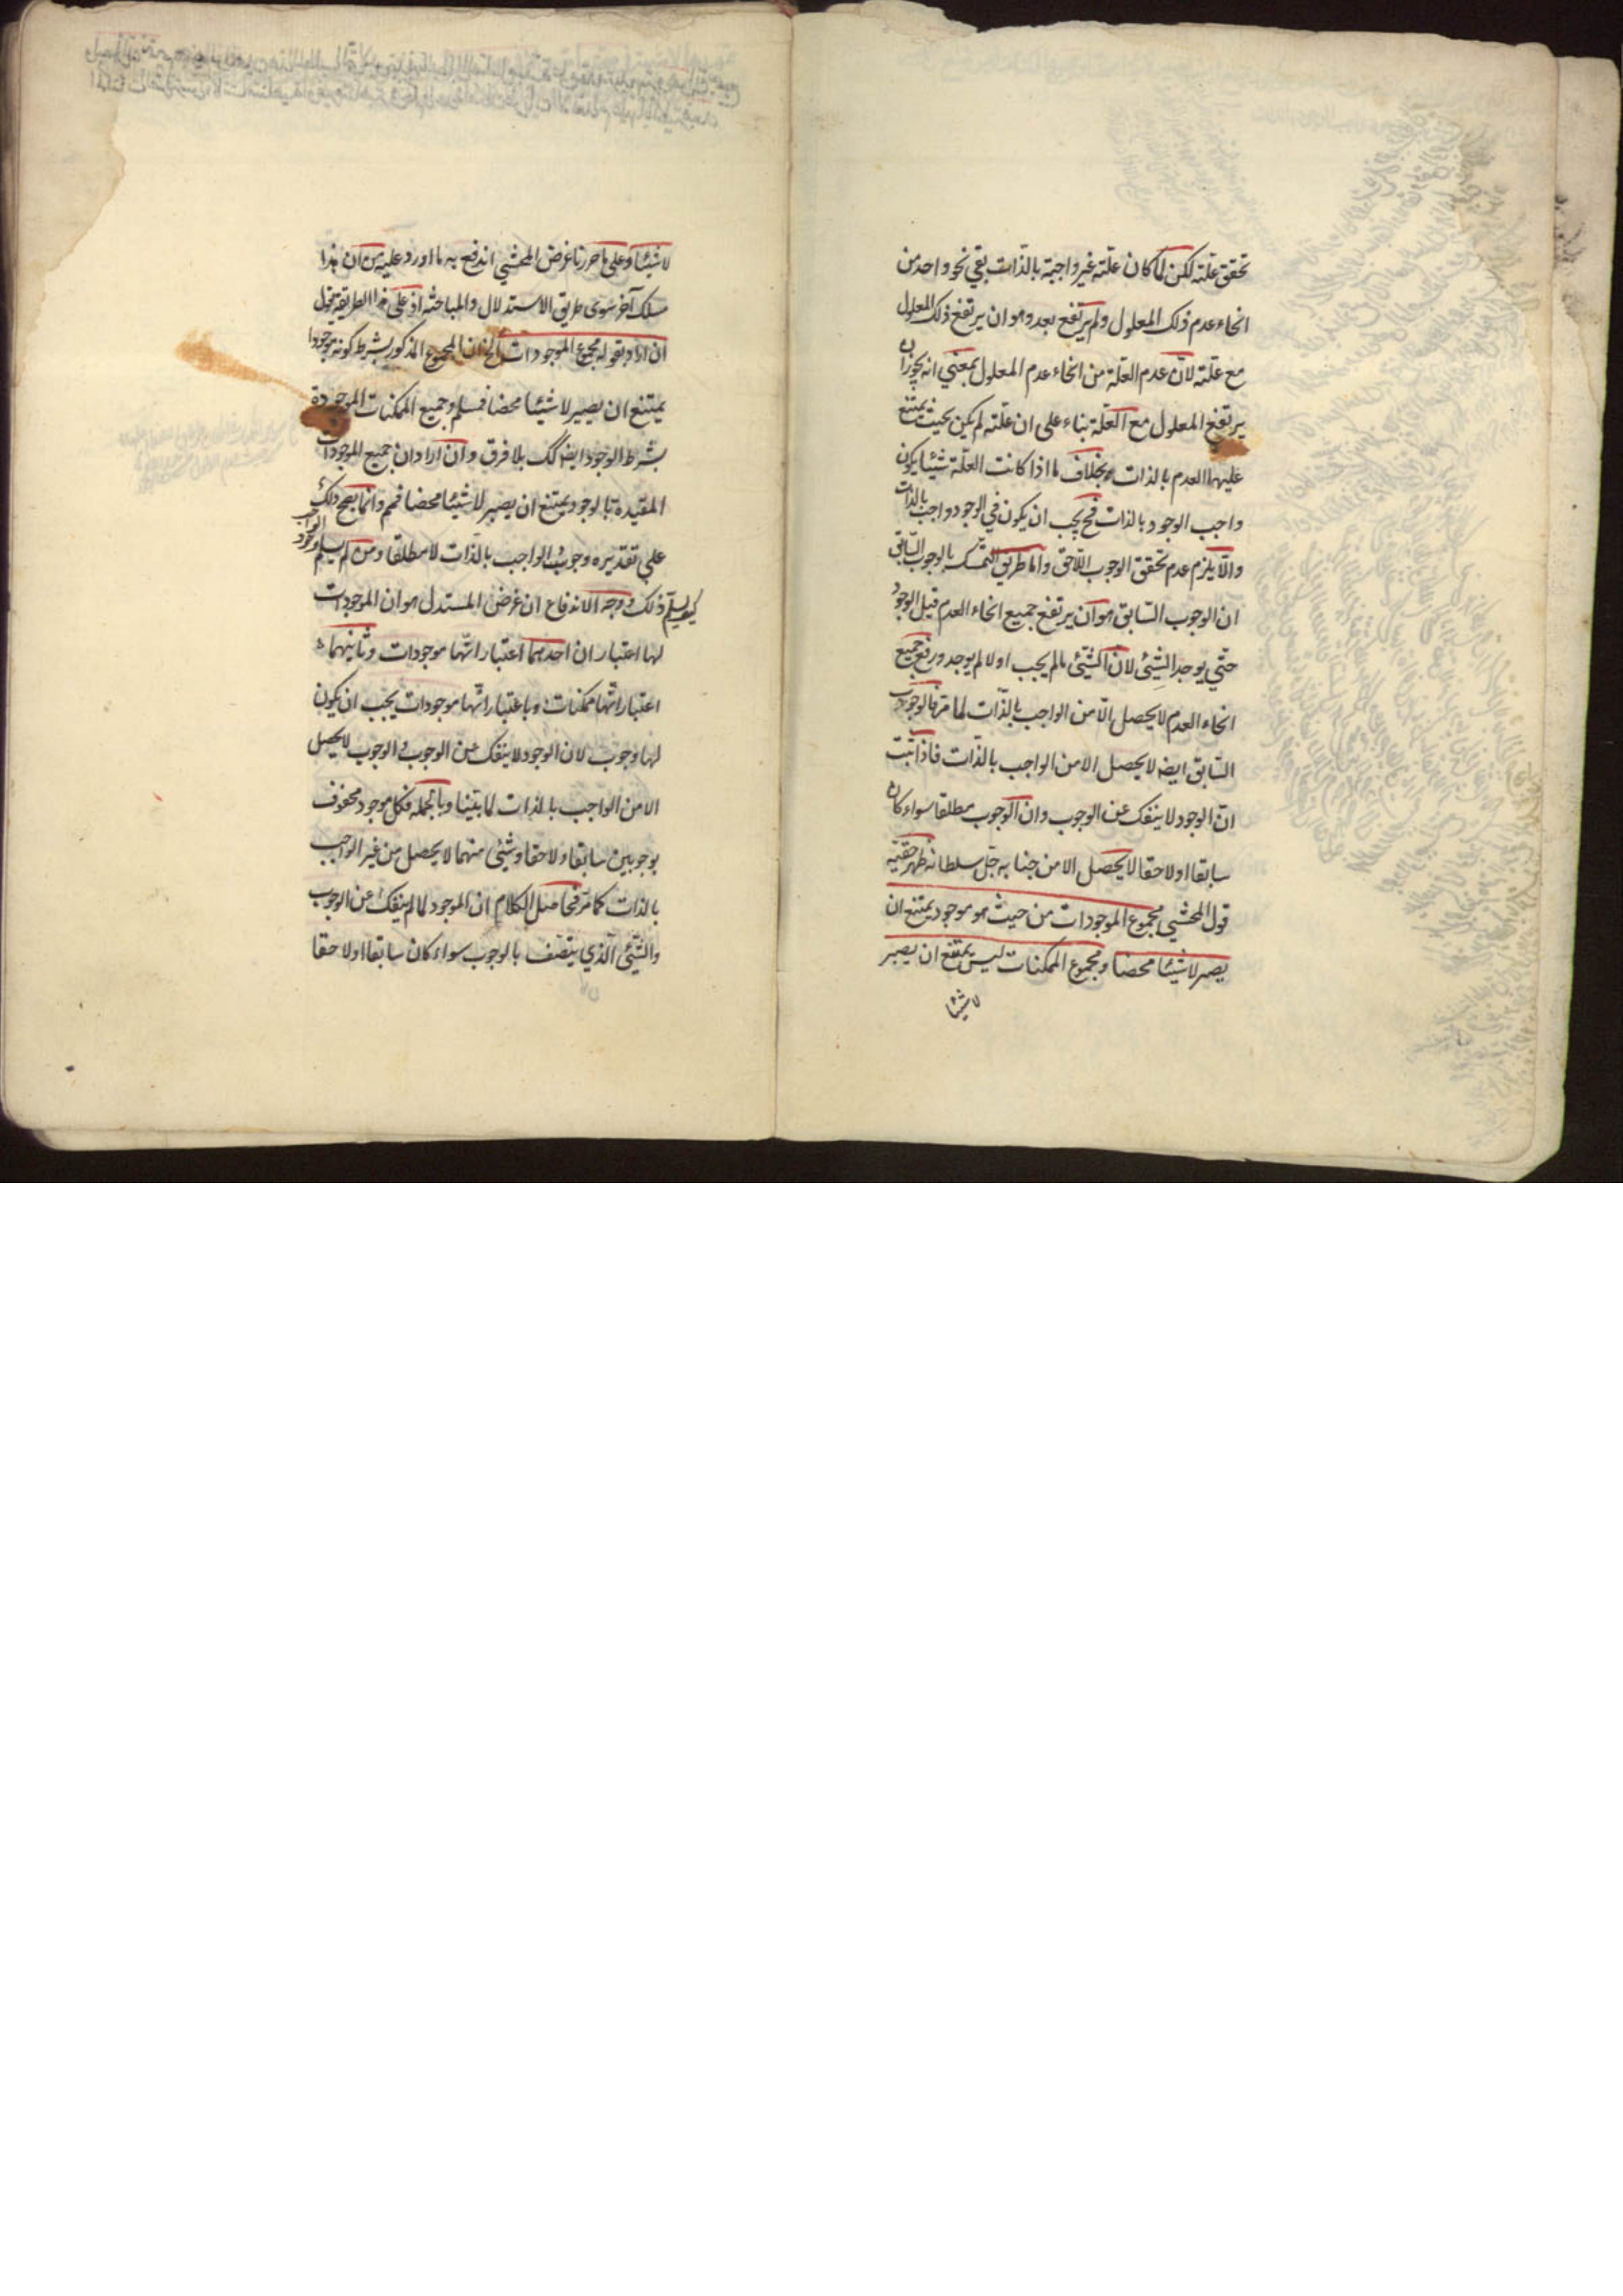 تحقق علته لكن لما كان علته غير واجبة بالذات بقي نحو واحد من
انحاء عدم ذلك المعلول ولم يرتفع بعد وهو ان يرتفع ذلك المعلول
مع علته لان عدم العلة من انحاء عدم المعلول بمعني انه يجوز ان
يرتفع المعلول مع العلة بناء على ان علته لم يكن بحيث يمتنع
عليها العدم بالذات بخلاف ما اذا كانت العلة شيئا يكون
واجب الوجود بالذات فح يجب ان يكون في الوجود واجب بالذات
والا يلزم عدم تحقق الوجوب اللاحق واما طريق التمسك بالوجوب السابق
ان الوجوب السابق هو ان يرتفع جميع انحاء العدم قبل الوجود
حتي يوجد الشئ لان الشئ ما لم يجب اولا لم يوجد ورفع جميع
انحاء العدم لا يحصل الا من الواجب بالذات لما مر فالوجوب
السابق ايضه لا يحصل الا من الواجب بالذات فاذا ثبت
ان الوجود لا ينفك عن الوجوب وان الوجوب مطلقا سواء كان
سابقا او لاحقا لا يحصل الا من جنابه جل سلطانه ظهر حقية
قول المحشي مجموع الموجودات من حيث هو موجود يمتنع ان
يصير لا شيئا محضا ومجموع الممكنات ليس يمتنع ان يصير
لا شيئا
لا شيئا وعلى ما حررنا غرض المحشي اندفع به ما اورد عليه من ان هذا
مسلك آخر سوى طريق الاستدلال والمباحثه اذ على هذا الطريقة يقول
ان اراد بقوله مجموع الموجودات الخ ان المجموع المذكور بشرط كونه موجودا
يمتنع ان يصير لا شيئا محضا فمسلم وجميع الممكنات الموجودة
بشرط الوجود ايضا كك بلا فرق وان اراد ان جميع الموجودات
المقيدة بالوجود يمتنع ان يصير لا شيئا محضا فمم وانما يصح ذلك
على تقديره وجوب الواجب بالذات لا مطلقا ومن لم يسلم وجود الواجب
كيف يسلم ذلك ووجه الاندفاع ان غرض المستدل هو ان الموجودات
لها اعتباران احدهما اعتبار انها موجودات وثانيهما
اعتبار انها ممكنات وباعتبار انها موجودات يجب ان يكون
لها وجوب لان الوجود لا ينفك عن الوجوب والوجوب لا يحصل
الا من الواجب بالذات لما بينا وبالجمله فكل موجود محفوف
بوجوبين سابقا ولاحقا وشئ منهما لا يحصل من غير الواجب
بالذات كما مر فحاصل الكلام ان الموجود لما لم ينفك عن الوجوب
والشئ الذي يتصف بالوجوب سواء كان سابقا او لاحقا